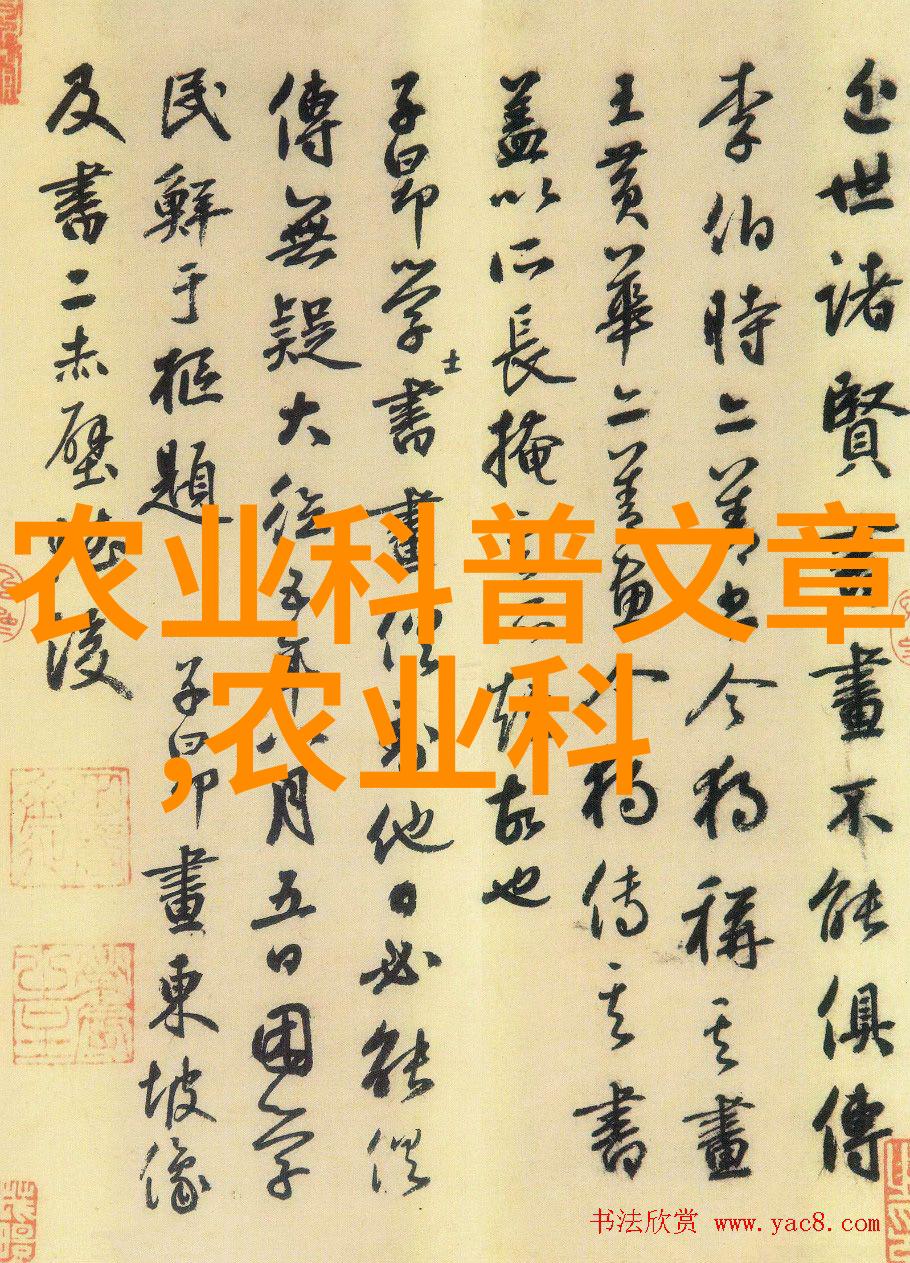 近世諸賢書畫不能俱傳
李伯時亦善書今獨稱其畫
王黃華亦善畫今獨傳其書
蓋以所長掩其所短故也
子昂學士書畫俱到他日必能俱
傳無疑大德五年八月五日困學
民鮮于樞題 子昂畫東坡像
及書二赤壁賦後
农业科普文章
,农业科
书法欣赏 www.yac8.com